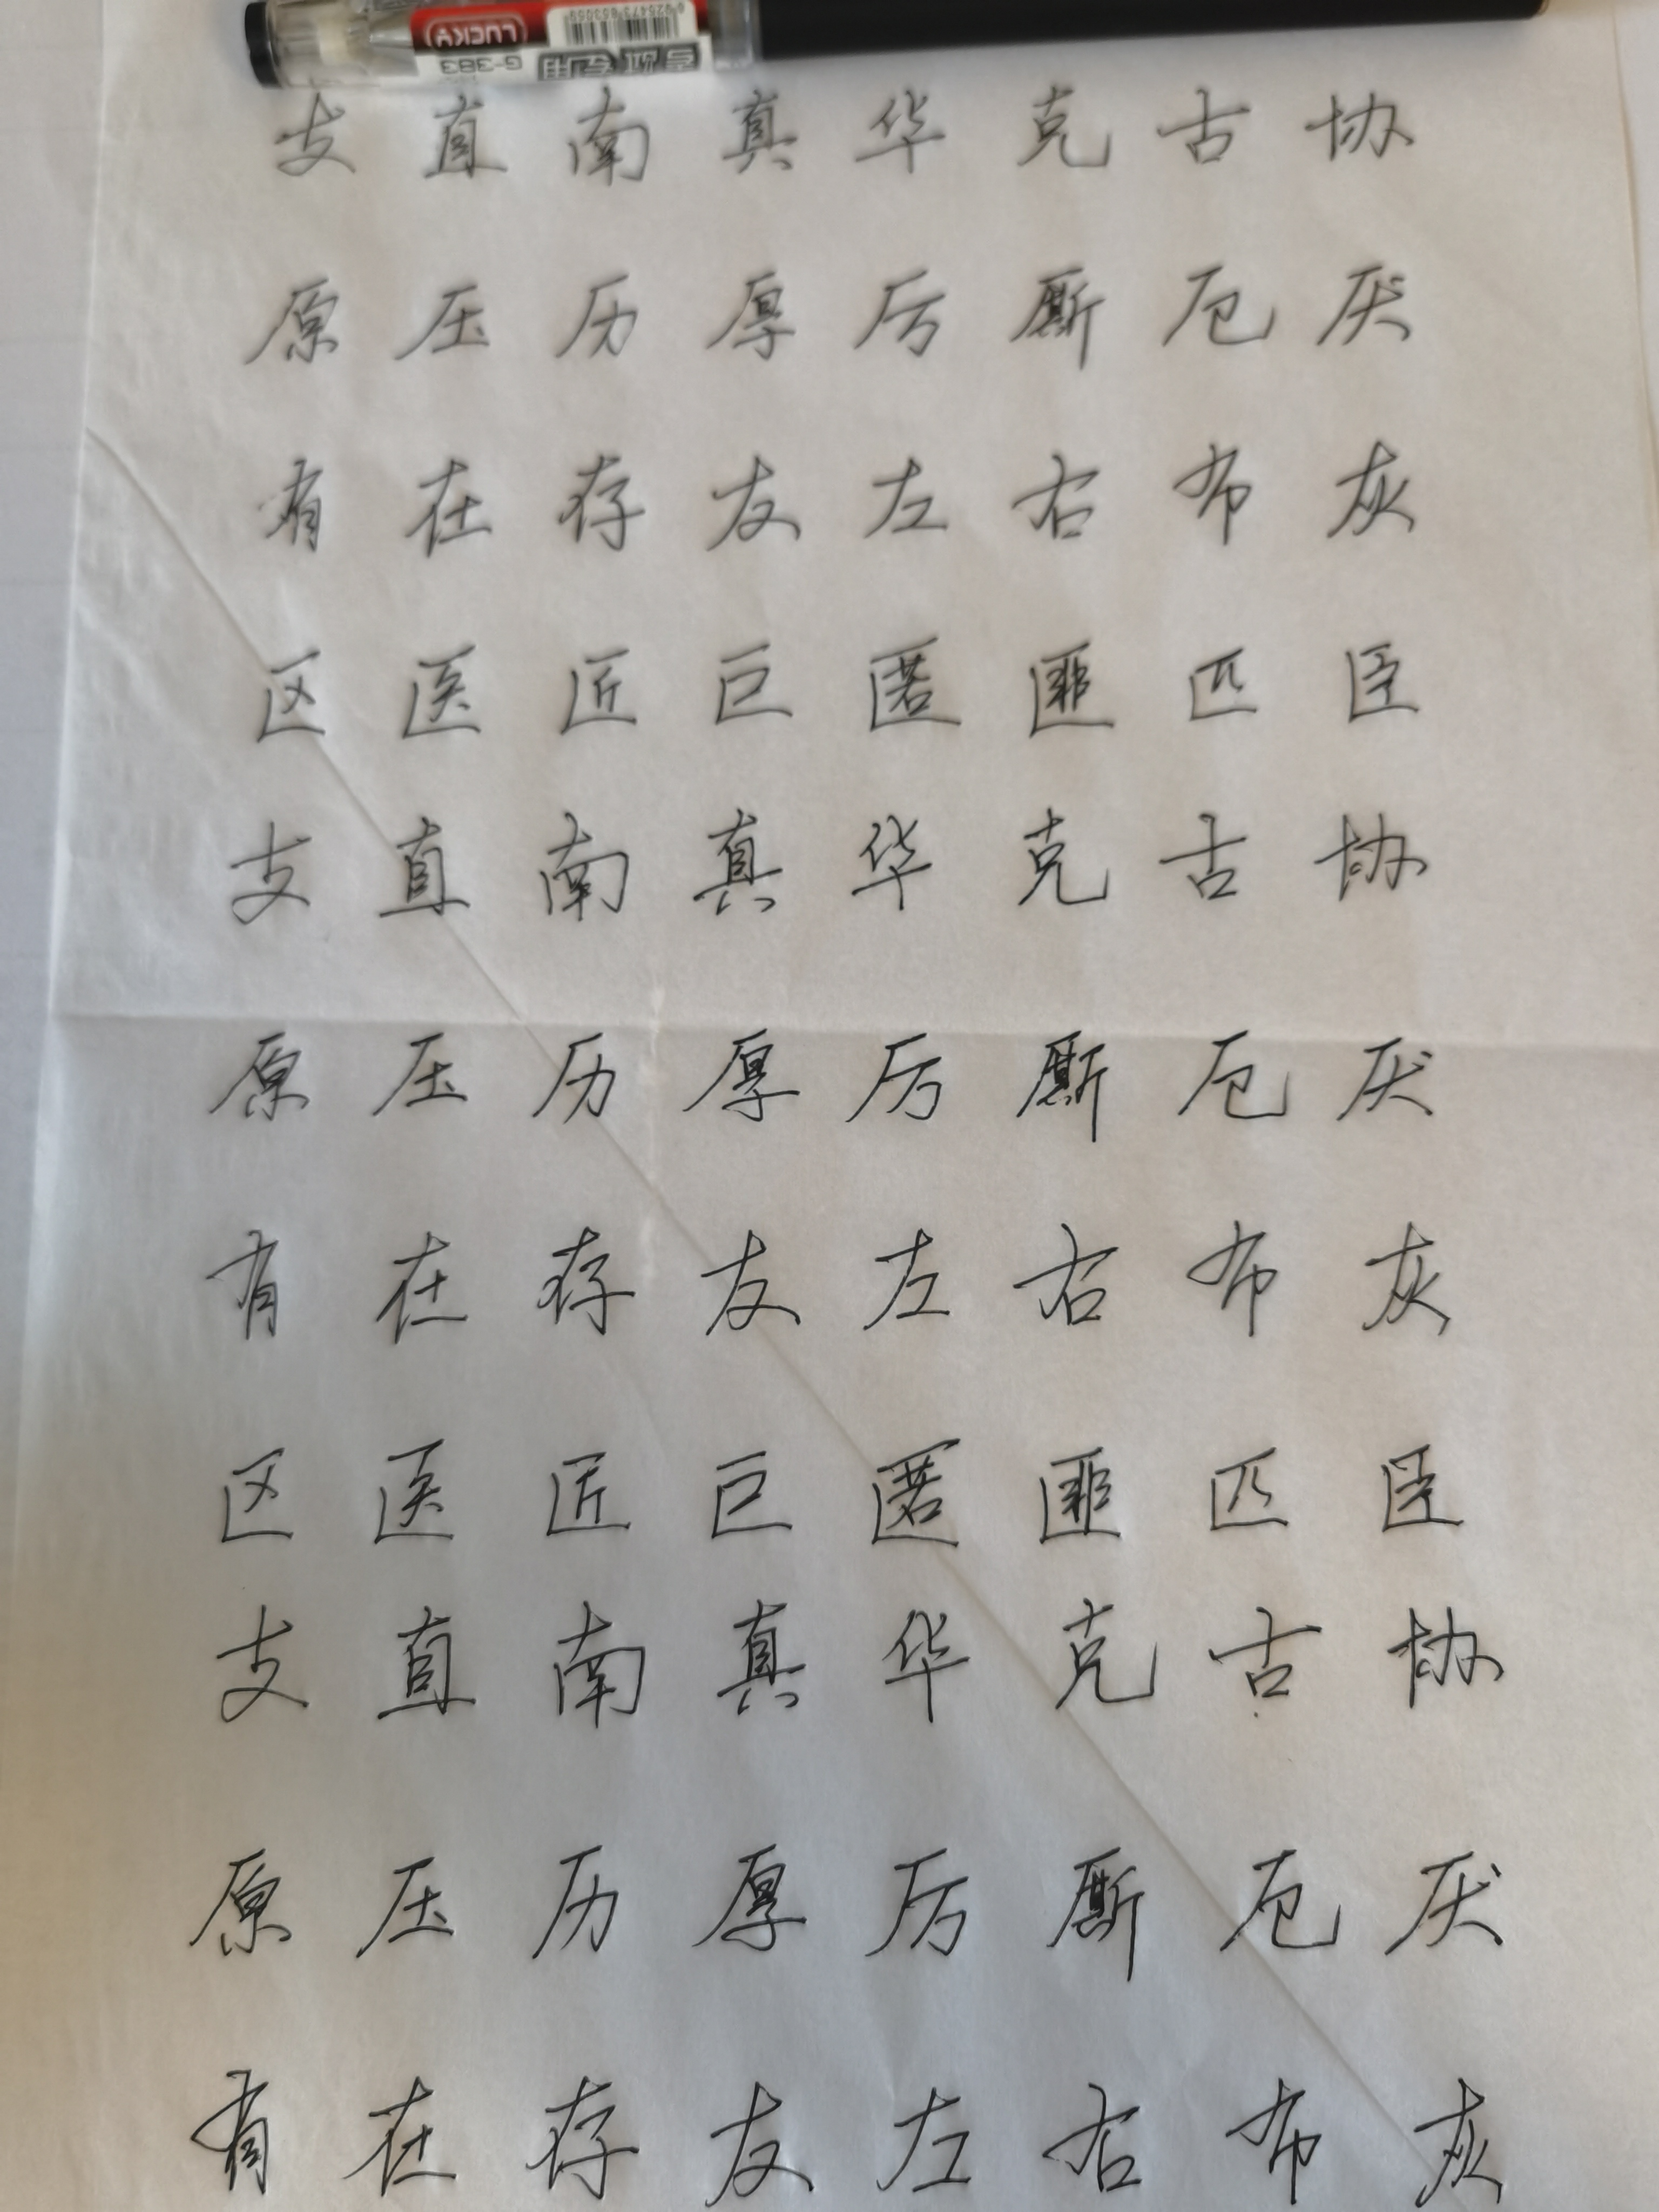 LUCKA
G-383
考试专用
支 直 南 真 华 克 古 协
原 压 历 厚 厉 厮 厄 厌
有 在 存 友 左 右 布 灰
区 医 匠 巨 匿 匪 匹 臣
支 直 南 真 华 克 古 协
原 压 历 厚 厉 厮 厄 厌
有 在 存 友 左 右 布 灰
区 医 匠 巨 匿 匪 匹 臣
支 直 南 真 华 克 古 协
原 压 历 厚 厉 厮 厄 厌
有 在 存 友 左 右 布 灰